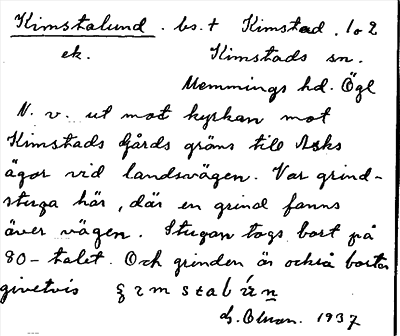 Kimstalund. bs. t Kimstad. 1 o 2
ek. Kimstads sn.
Memmings hd. Ögl
N. v. ut mot kyrkan mot
Kimstads Gårds gräns till Asks
ägor vid landsvägen. Var grind-
stuga här, där en grind fanns
över vägen. Stugan togs bort på
80-talet. Och grinden är också borta
givetvis
G. Olson. 1937